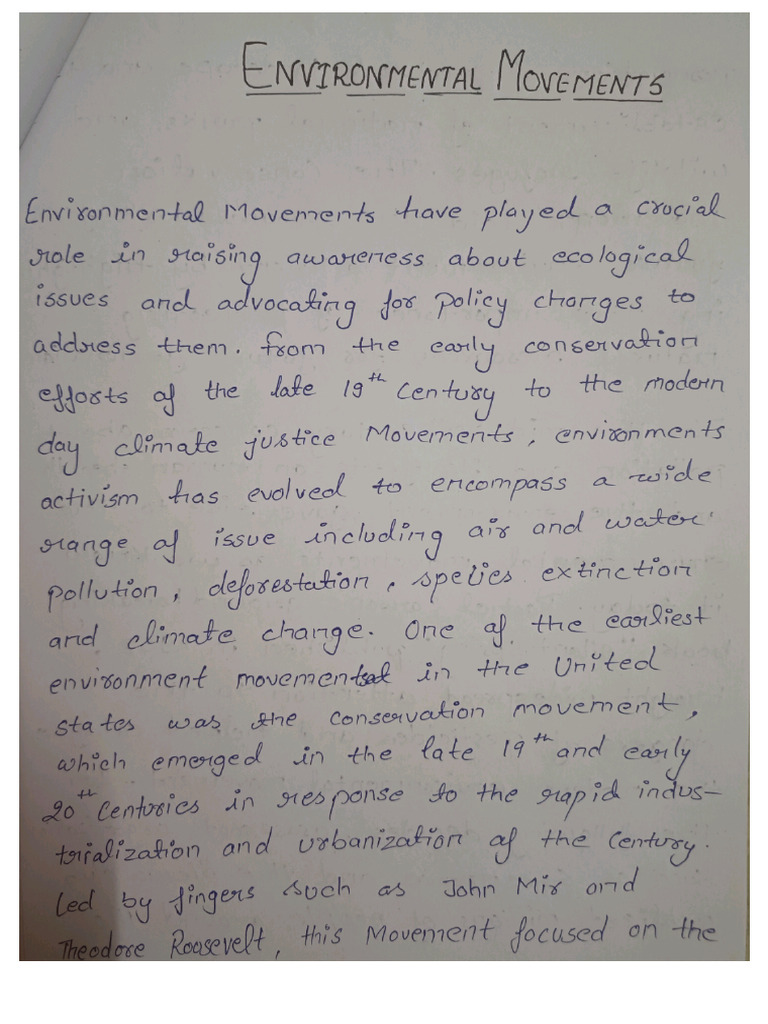 ENVIRONMENTAL MOVEMENTS
Environmental Movements have played a crucial
role in raising awareness about ecological
issues and advocating for policy changes to
address them. From the early conservation
efforts of the late 19th century to the modern
day climate justice Movements, environments
activism has evolved to encompass a wide
range of issue including air and water
pollution, deforestation, spelies extinction
and climate change. One of the earliest
environment movements in the United
states was the conservation movement,
which emerged in the late 19th and early
20th Centuries in response to the rapid indus-
trialization and urbanization of the Century.
Led by fingers such as John Mir and
Theodore Roosevelt, this Movement focused on the